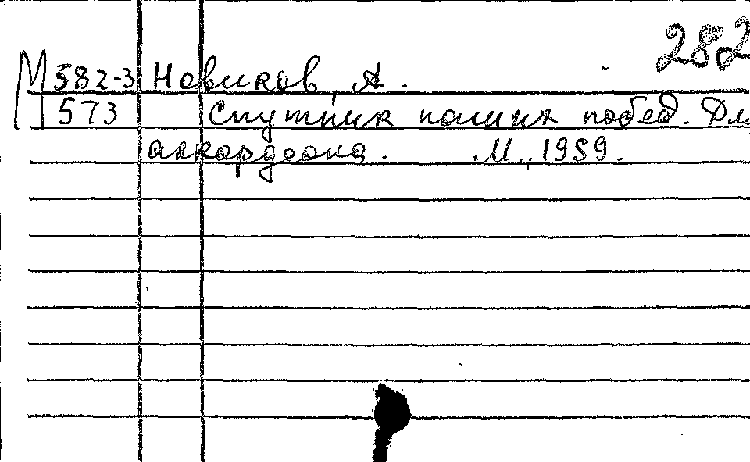 282
М 582-3 Новиков, А.
573 Спутник наших побед. Для
аккордеона. М., 1959.